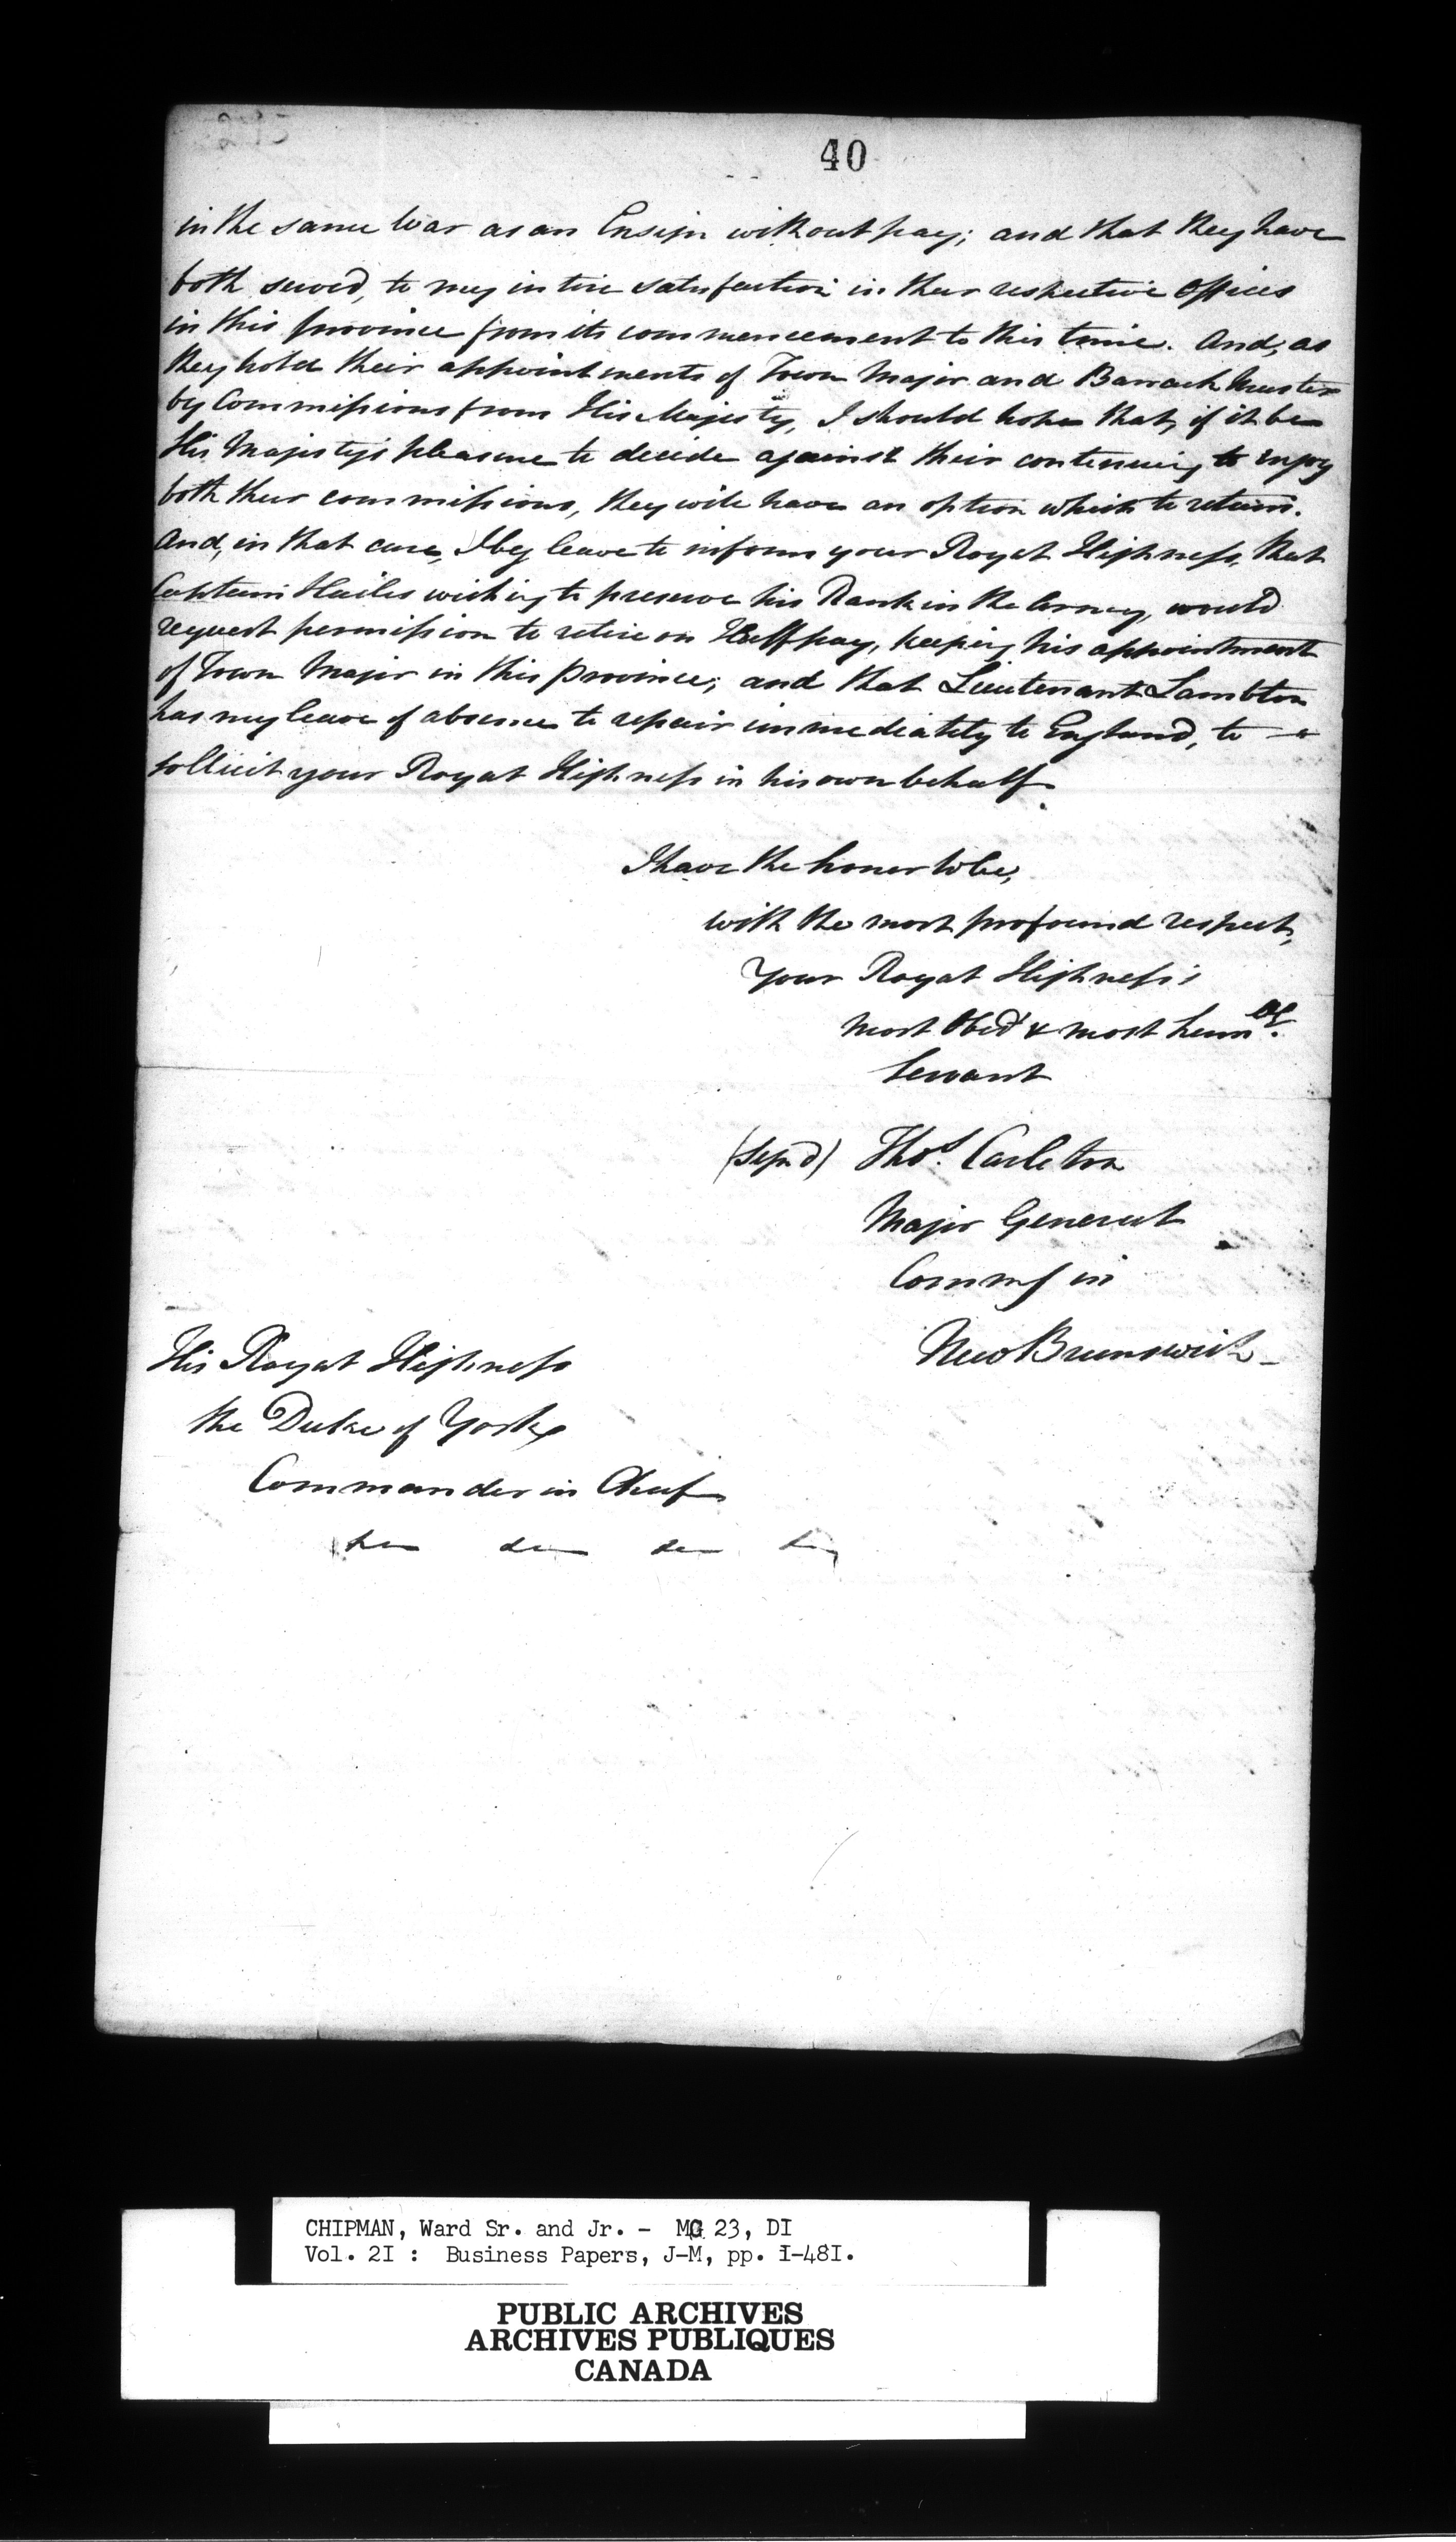 40
in the same War as an Ensign without pay; and that they have
both served, to my intire satisfaction in their respective Offices
in this province from its commencement to this time. And, as
they hold their appointments of Town Major and Barrack Master
by Commissions from His Majesty, I should hope that, if it be
His Majesty's pleasure to decide against their continuing to enjoy
both their commissions, they will have an option which to retain.
And, in that case, I beg leave to inform your Royal Highness, that
Captain Hailes wishing to preserve his Rank in the Army, would
request permission to retire on Half pay, keeping his appointment
of Town Major in this province; and that Lieutenant Lambton
has my leave of absence to repair immediately to England, to
sollicit your Royal Highness in his own behalf.
I have the honor to be,
with the most profound respect,
Your Royal Highness's
most Obed & most humble
Servant
(Sign'd) Thos. Carleton
Major General
Commg in
New Brunswick
His Royal Highness
the Duke of York
Commander in Chief
CHIPMAN, Ward Sr. and Jr. - MG 23, DI
Vol. 2I : Business Papers, J-M, pp. I-48I.
PUBLIC ARCHIVES
ARCHIVES PUBLIQUES
CANADA